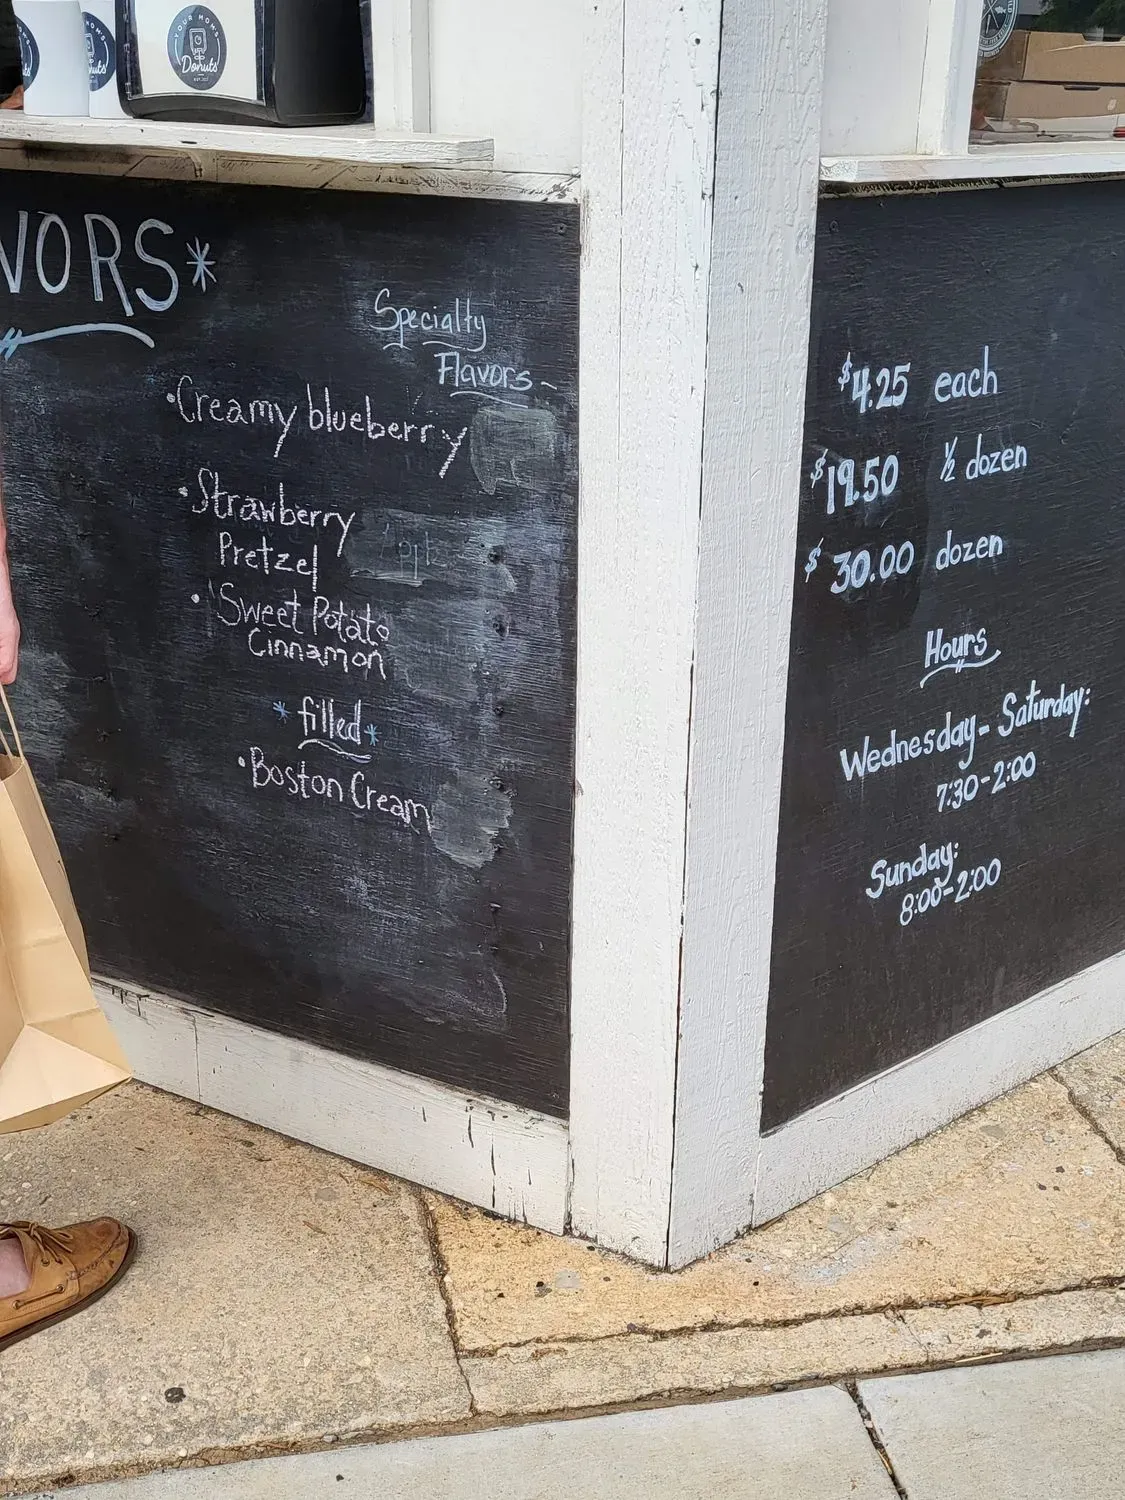 YOUR MOM'S
Donuts
VORS*
Specialty
Flavors
• Creamy blueberry
• Strawberry
Pretzel
• Sweet Potato
Cinnamon
* filled *
• Boston Cream
$4.25 each
$19.50 ½ dozen
$30.00 dozen
Hours
Wednesday - Saturday:
7:30-2:00
Sunday:
8:00-2:00